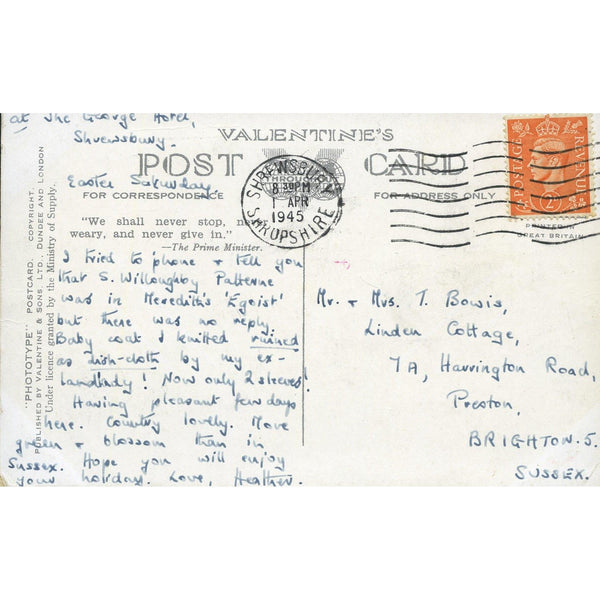 at The George Hotel,
Shrewsbury.
Easter Saturday
VALENTINE'S
POST CARD
FOR CORRESPONDENCE
FOR ADDRESS ONLY
"We shall never stop, never
weary, and never give in."
—The Prime Minister.
I tried to phone + tell you
that S. Willoughby Patterne
was in Meredith's 'Egoist'
but there was no reply.
Baby coat I knitted ruined
as dish-cloth by my ex-
landlady! Now only 2 sleeves
Having pleasant few days
here. Country lovely. More
green + blossom than in
Sussex. Hope you will enjoy
your holiday. Love, Heather.
"PHOTOTYPE" POSTCARD. COPYRIGHT.
PUBLISHED BY VALENTINE & SONS, LTD. DUNDEE AND LONDON
Under licence granted by the Ministry of Supply.
SHREWSBURY
8.30PM
1 APR
1945
SHROPSHIRE
POSTAGE
REVENUE
2
PRINTED IN
GREAT BRITAIN
Mr. + Mrs. T. Bowis,
Linden Cottage,
7A, Harrington Road,
Preston,
BRIGHTON. 5.
SUSSEX.